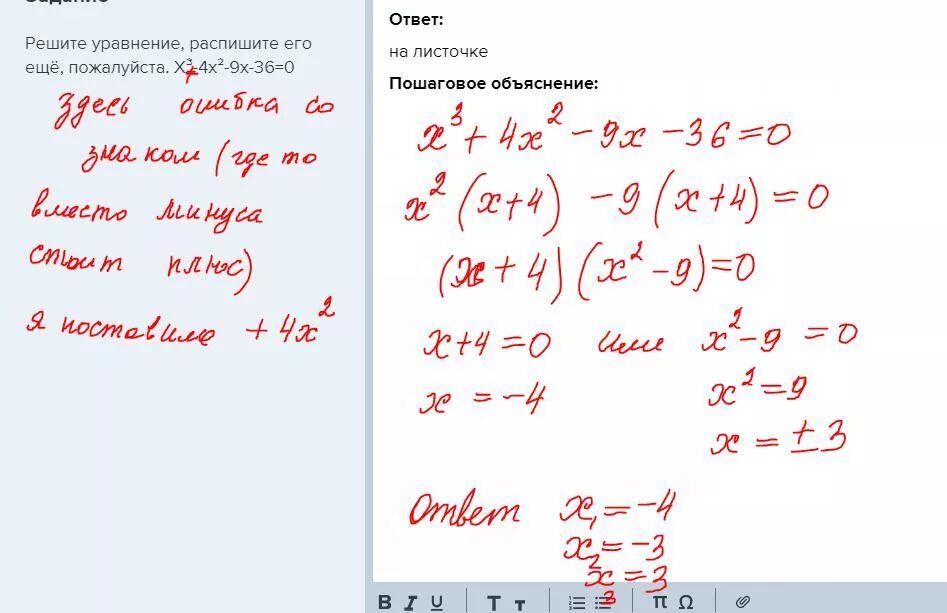 Задание
Решите уравнение, распишите его
ещё, пожалуйста. X³-4x²-9x-36=0
+
здесь ошибка со
знаком (где то
вместо минуса
стоит плюс)
я поставила + 4x²
Ответ:
на листочке
Пошаговое объяснение:
x³ + 4x² - 9x - 36 = 0
x² (x+4) - 9 (x+4) = 0
(x + 4) (x² - 9) = 0
x+4 = 0 или x² - 9 = 0
x = -4 x² = 9
x = ± 3
Ответ x₁ = -4
x₂ = -3
x₃ = 3
B I U T т π Ω